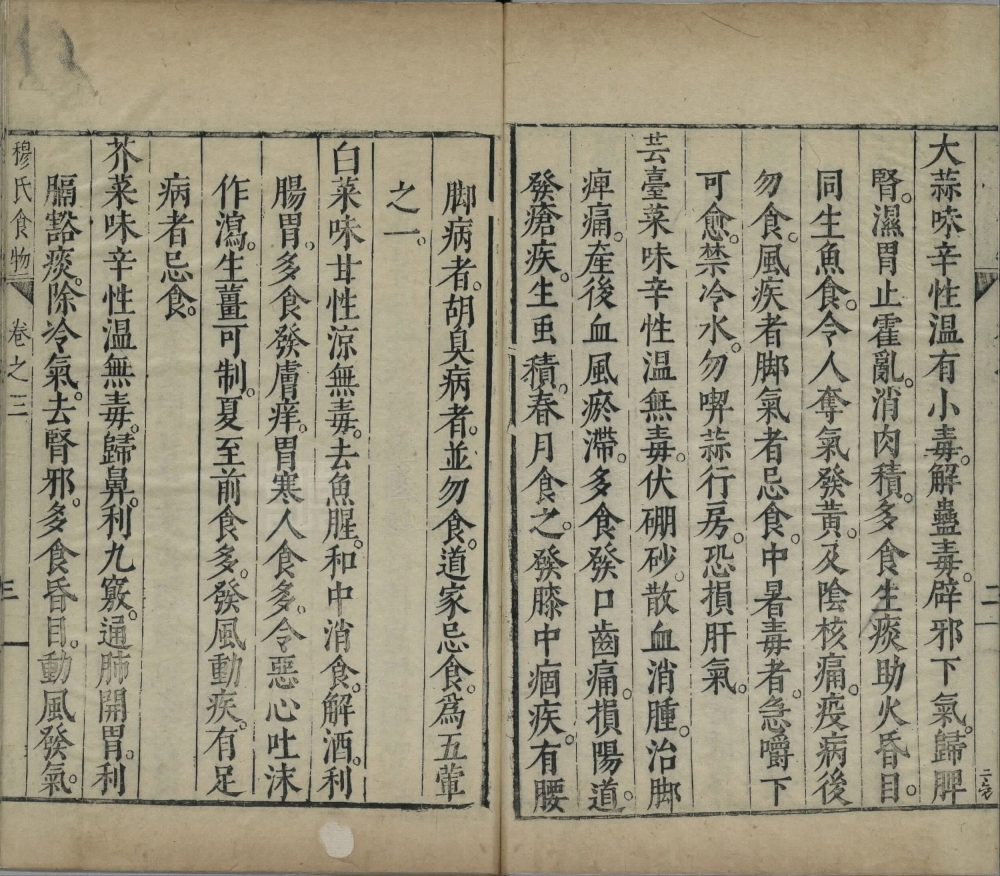 大蒜味辛性温有小毒。解蠱毒。辟邪下氣。歸脾
腎。濕胃止霍亂。消肉積。多食生痰助火昏目。
同生魚食。令人奪氣發黄。及陰核痛。疫病後
勿食。風疾者脚氣者忌食。中暑毒者。急嚼下
可愈。禁冷水。勿喫蒜行房。恐損肝氣。
芸臺菜味辛性温無毒。伏硼砂。散血消腫。治脚
痺痛。産後血風瘀滯。多食發口齒痛。損陽道。
發瘡疾。生虫積。春月食之。發膝中痼疾。有腰
脚病者。胡臭病者。並勿食。道家忌食。爲五葷
之一。
白菜味甘性涼無毒。去魚腥。和中消食。解酒。利
腸胃。多食發膚痒。胃寒人食多。令惡心吐沫
作瀉。生薑可制。夏至前食多。發風動疾。有足
病者忌食。
芥菜味辛性温無毒。歸鼻。利九竅。通肺開胃。利
膈豁痰。除冷氣。去腎邪。多食昏目。動風發氣。
穆氏食物 卷之三 三